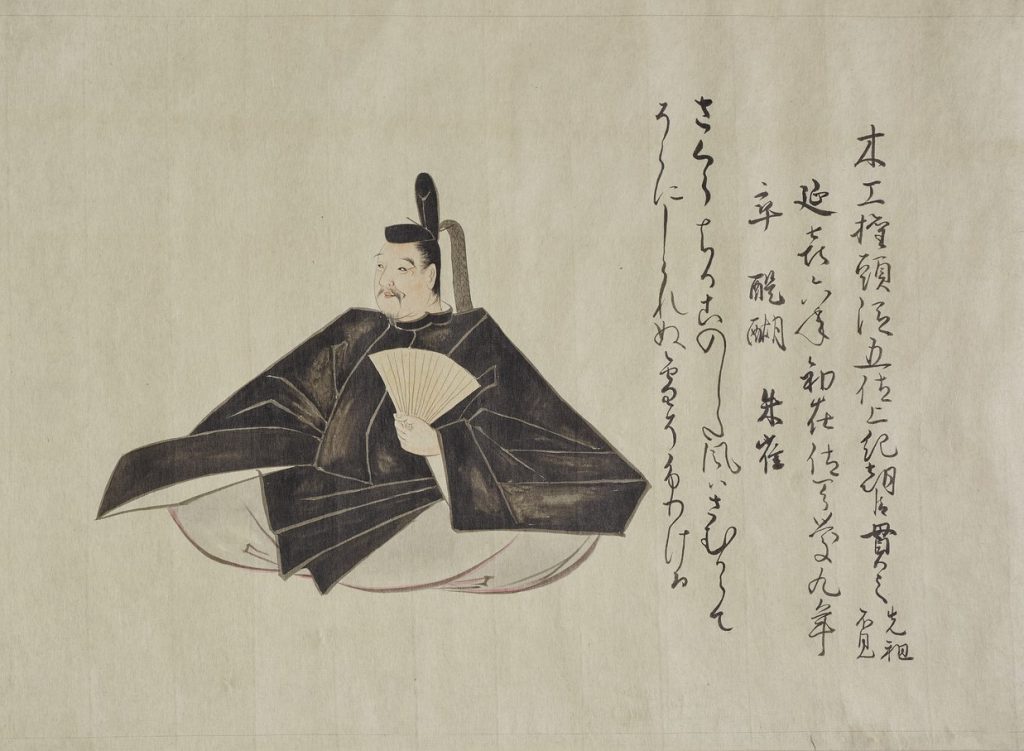 木工権頭従五位上紀朝臣貫之 先祖不見
延喜六年初在位天慶九年
卒 醍醐 朱雀
さくらちるこのした風はさむからて
そらにしられぬ雪そふりける